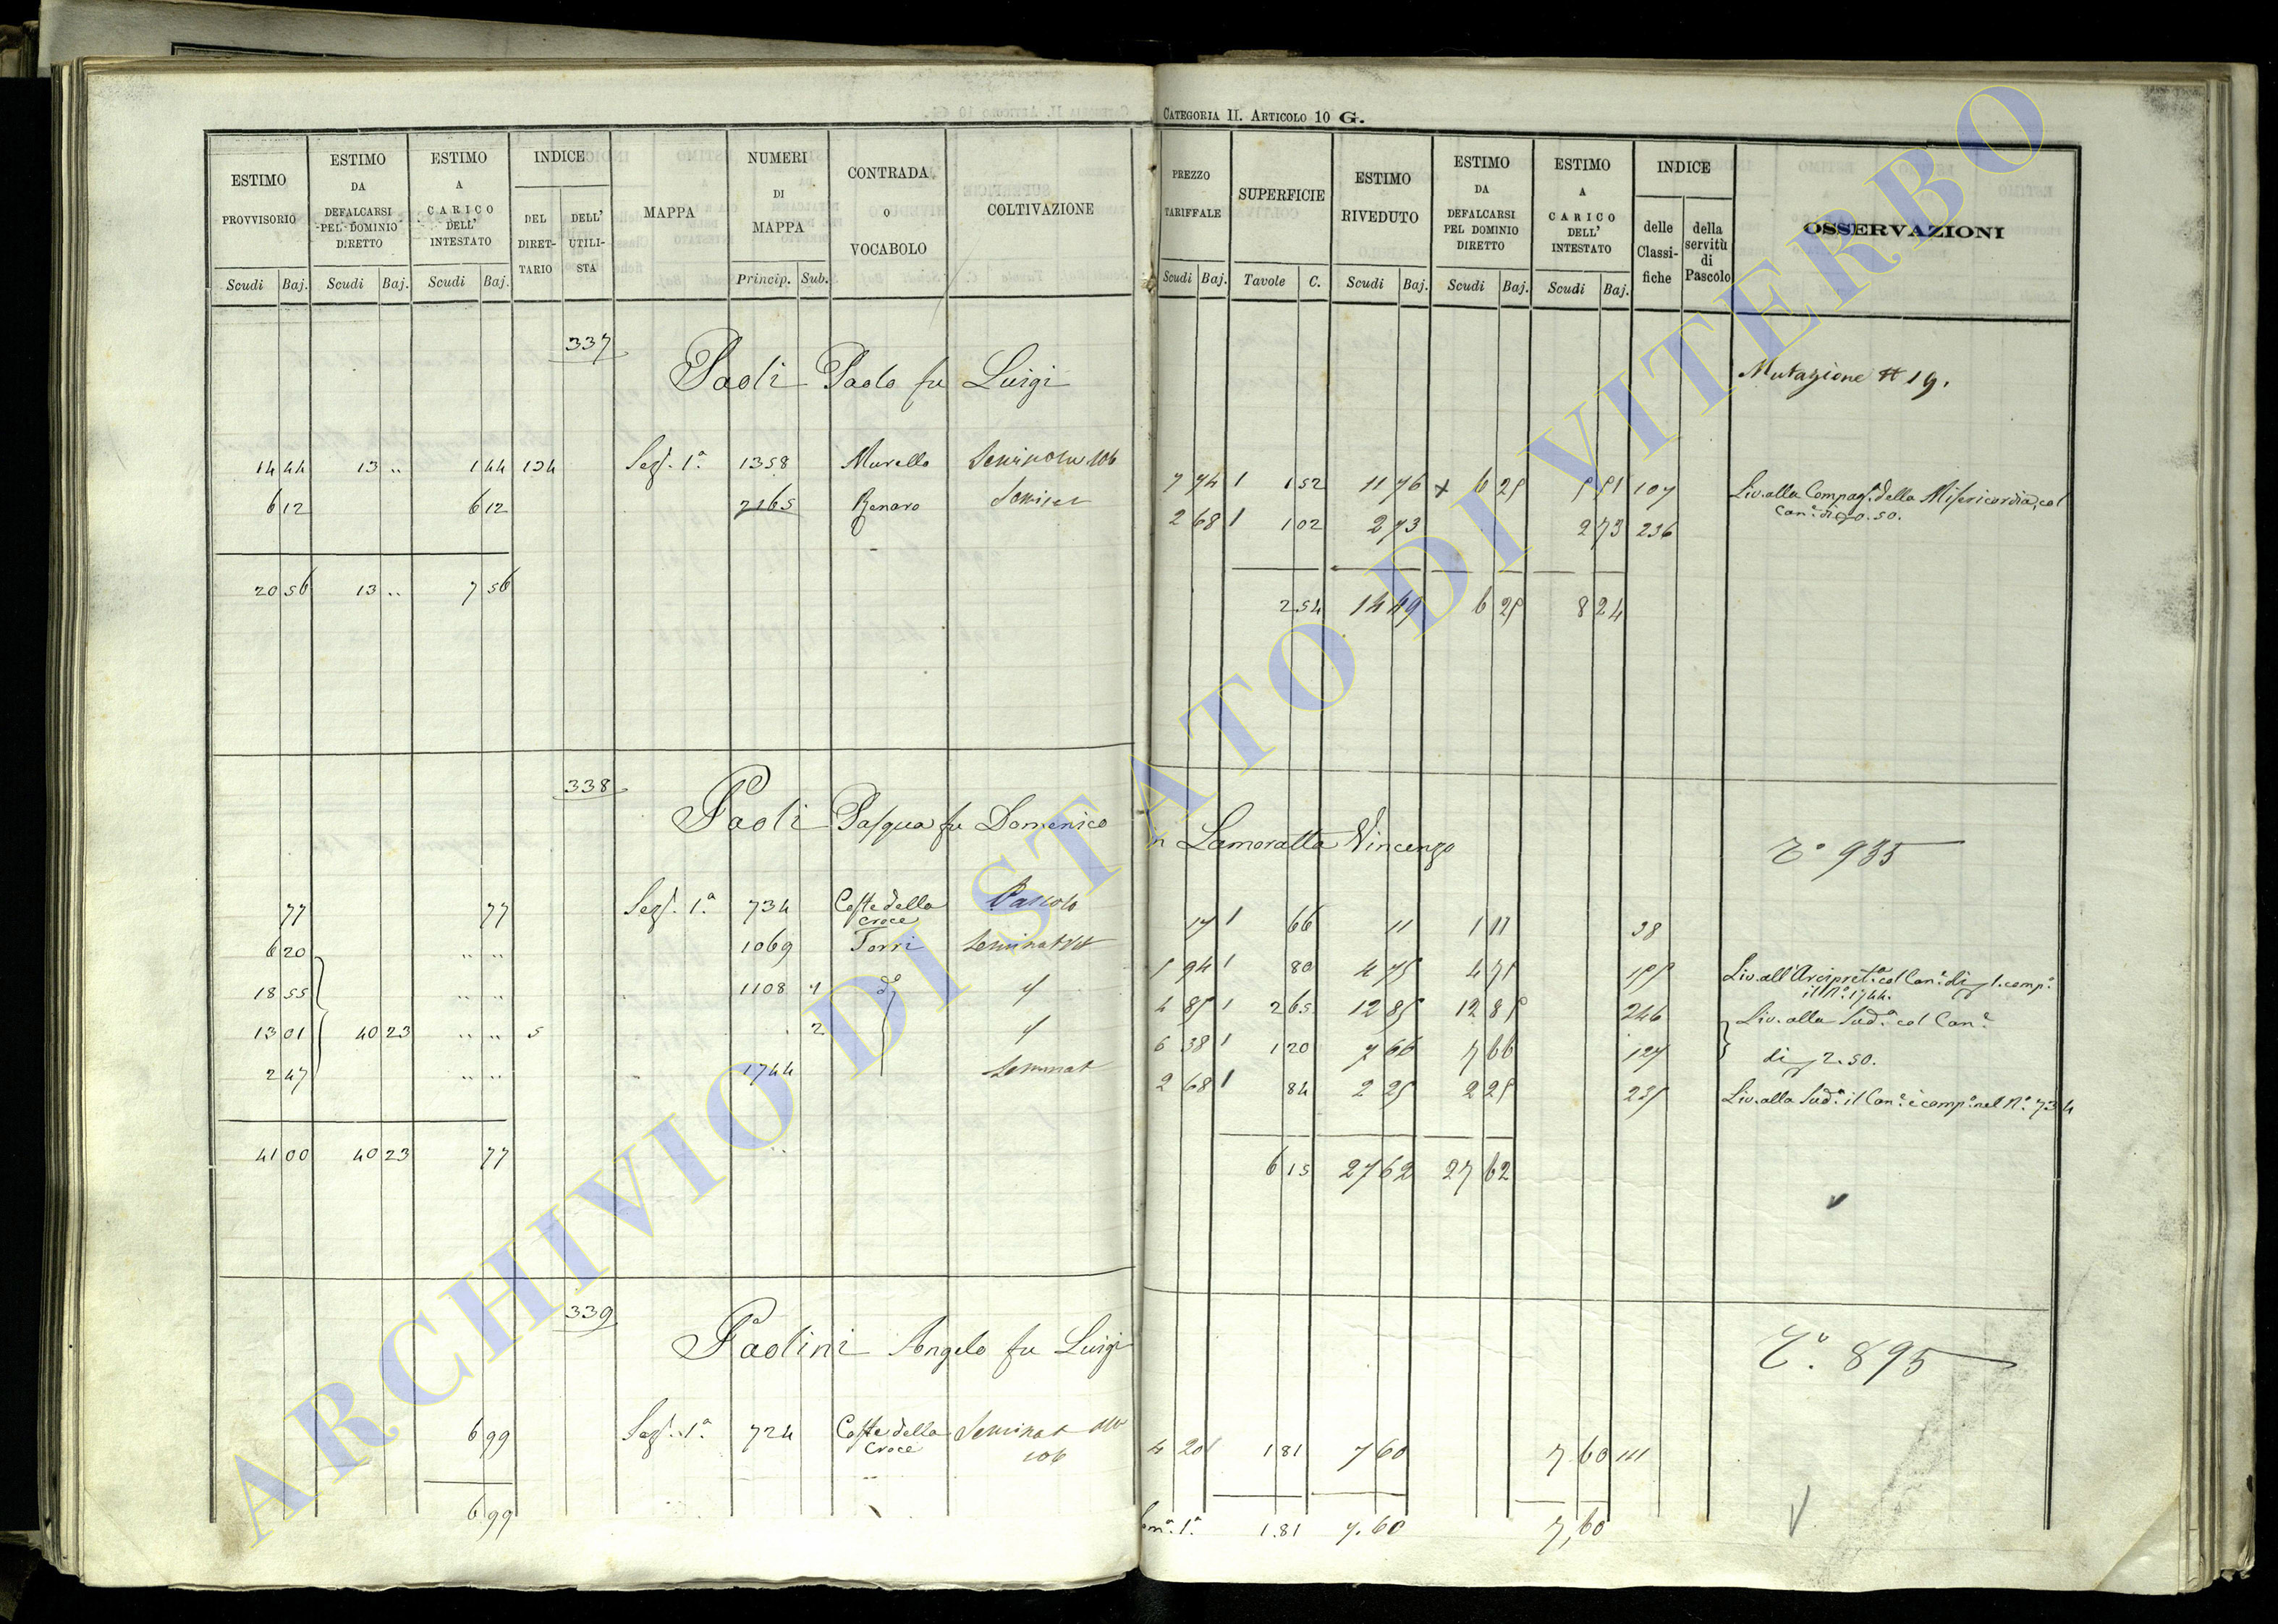 CATEGORIA II. ARTICOLO 10 G.
ESTIMO PROVVISORIO | ESTIMO DA DEFALCARSI PEL DOMINIO DIRETTO | ESTIMO A CARICO DELL' INTESTATO | INDICE | MAPPA | NUMERI DI MAPPA | CONTRADA O VOCABOLO | COLTIVAZIONE
DEL DIRETTARIO | DELL' UTILISTA
Scudi | Baj. | Scudi | Baj. | Scudi | Baj. | Princip. | Sub.
337
Paoli Paolo fu Luigi
14 44 | 13 .. | 1 44 | 134 | Sez. 1.ª | 1358 | Murello
6 12 | 6 12 | 2165
20 56 | 13 .. | 7 56
338
Paoli Pasqua fu Domenico
77 | 77 | Sez. 1.ª | 734 | Coste della | Pascolo
Croce
6 20 | .. .. | 1069 | Torri
18 55 | .. .. | 1108 1 | d.º | 4
13 01 | 40 23 | .. .. | 5 | 2 | 4
2 47 | .. .. | 1744 | Seminat
41 00 | 40 23 | 77
339
Paolini Angelo fu Luigi
6 99 | Sez. 1.ª | 724 | Coste della | Seminat
Croce
6 99
PREZZO TARIFFALE | SUPERFICIE | ESTIMO RIVEDUTO | ESTIMO DA DEFALCARSI PEL DOMINIO DIRETTO | ESTIMO A CARICO DELL' INTESTATO | INDICE | OSSERVAZIONI
delle Classifiche | della servitù di Pascolo
Scudi | Baj. | Tavole | C. | Scudi | Baj. | Scudi | Baj. | Scudi | Baj.
Mutazione # 19.
7 74 1 | 1 52 | 11 76 | x 6 25 | 5 51 | 107 | Liv. alla Compag.ª della Misericordia, col
Can.e di 0.50.
2 68 1 | 1 02 | 2 73 | 2 73 | 236
2 54 | 14 49 | 6 25 | 8 24
in Lamoratta Vincenzo
T.º 935
17 1 | 66 | 11 | 1 11 | 38
5 94 1 | 80 | 4 75 | 4 75 | 155 | Liv. all'Arcipret.ª col Can.e di 1. comp.º
il N.º 1744.
4 85 1 | 2 65 | 12 85 | 12 85 | 246 | Liv. alla Sud.ª col Can.e
6 38 1 | 1 20 | 7 66 | 7 66 | 127 | di 2.50.
2 68 1 | 84 | 2 25 | 2 25 | 235 | Liv. alla Sud.ª il Can.e è comp.º nel N.º 734
6 15 | 27 62 | 27 62
T.º 895
4 20 1 | 1 81 | 7 60 | 7 60 | 111
1.81 | 7.60 | 7,60
ARCHIVIO DI STATO DI VITERBO